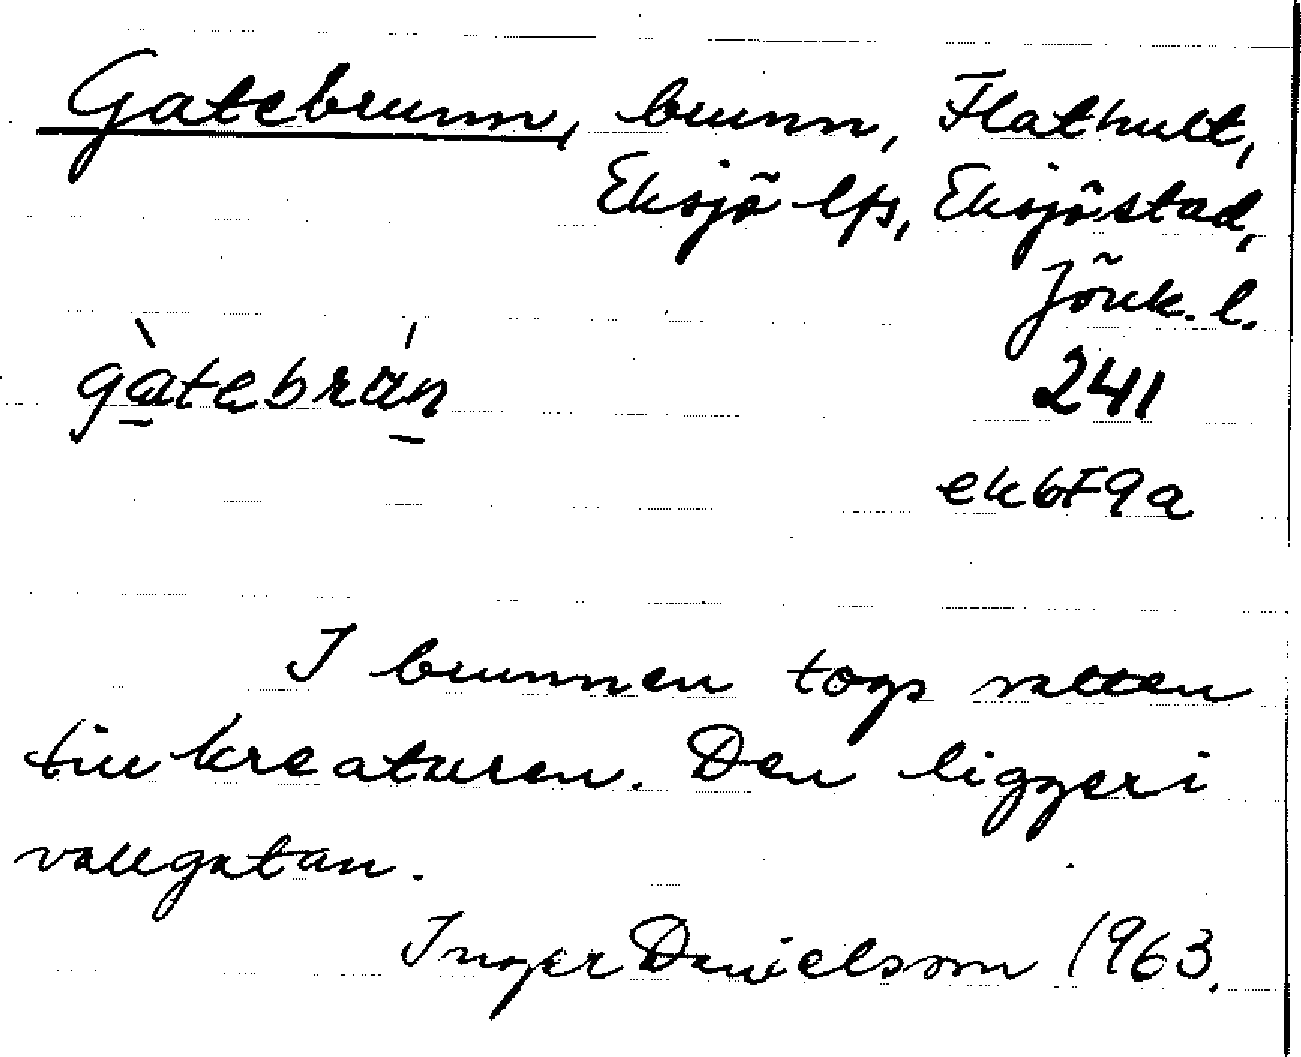 Gatebrunn, brunn, Flathult,
Eksjö lfs, Eksjö stad,
Jönk. l.
gàtebrán
241
ek6F9a
I brunnen togs vatten
till kreaturen. Den ligger i
vallgatan.
Inger Danielsson 1963.